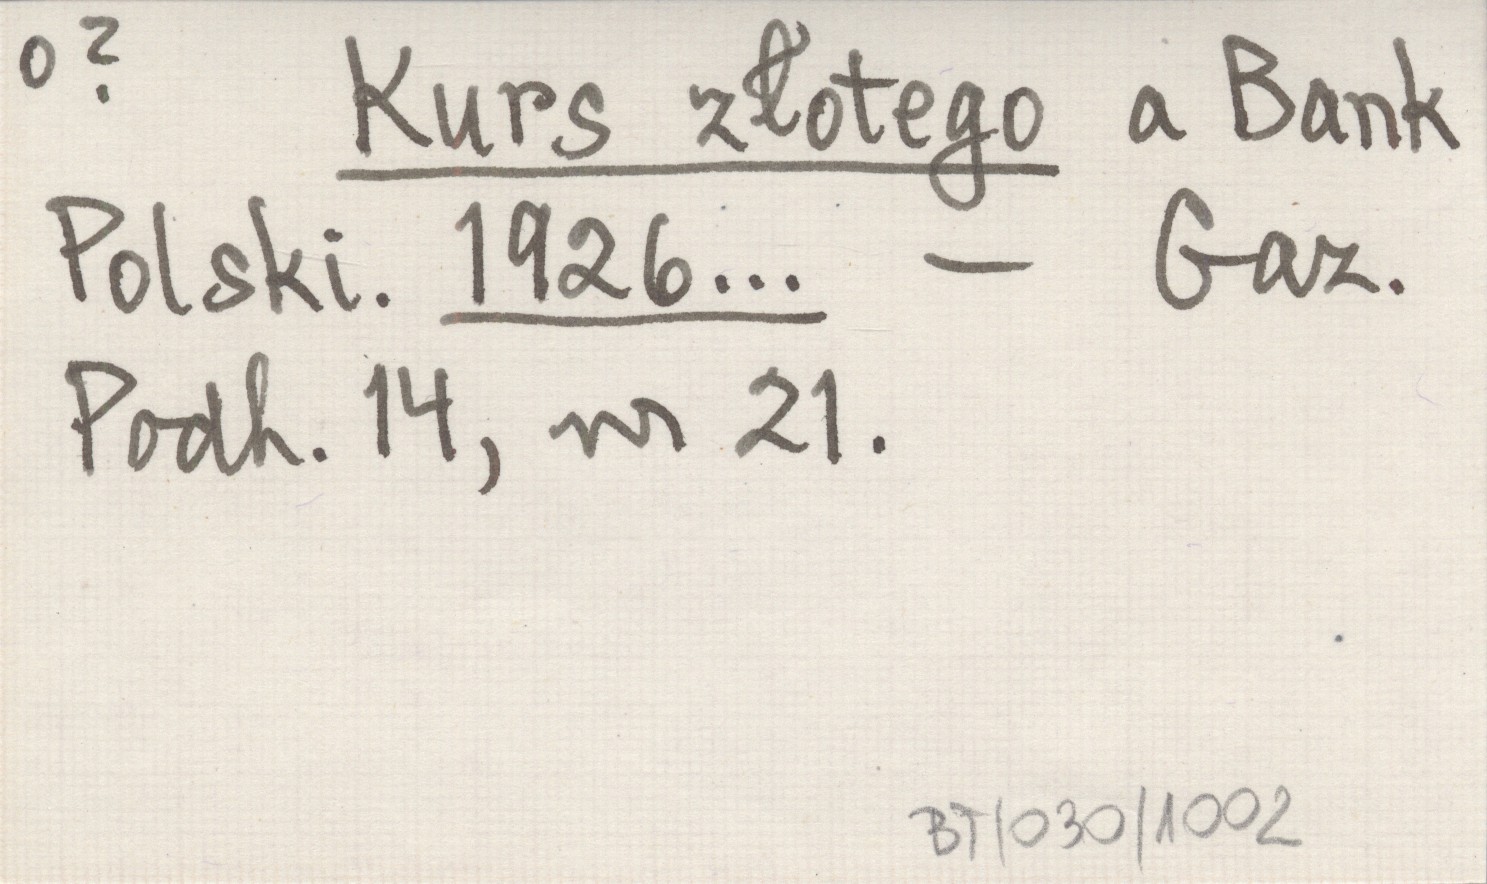 o ?
Kurs złotego a Bank
Polski. 1926... — Gaz.
Podh. 14, nr 21.
BT/030/1002